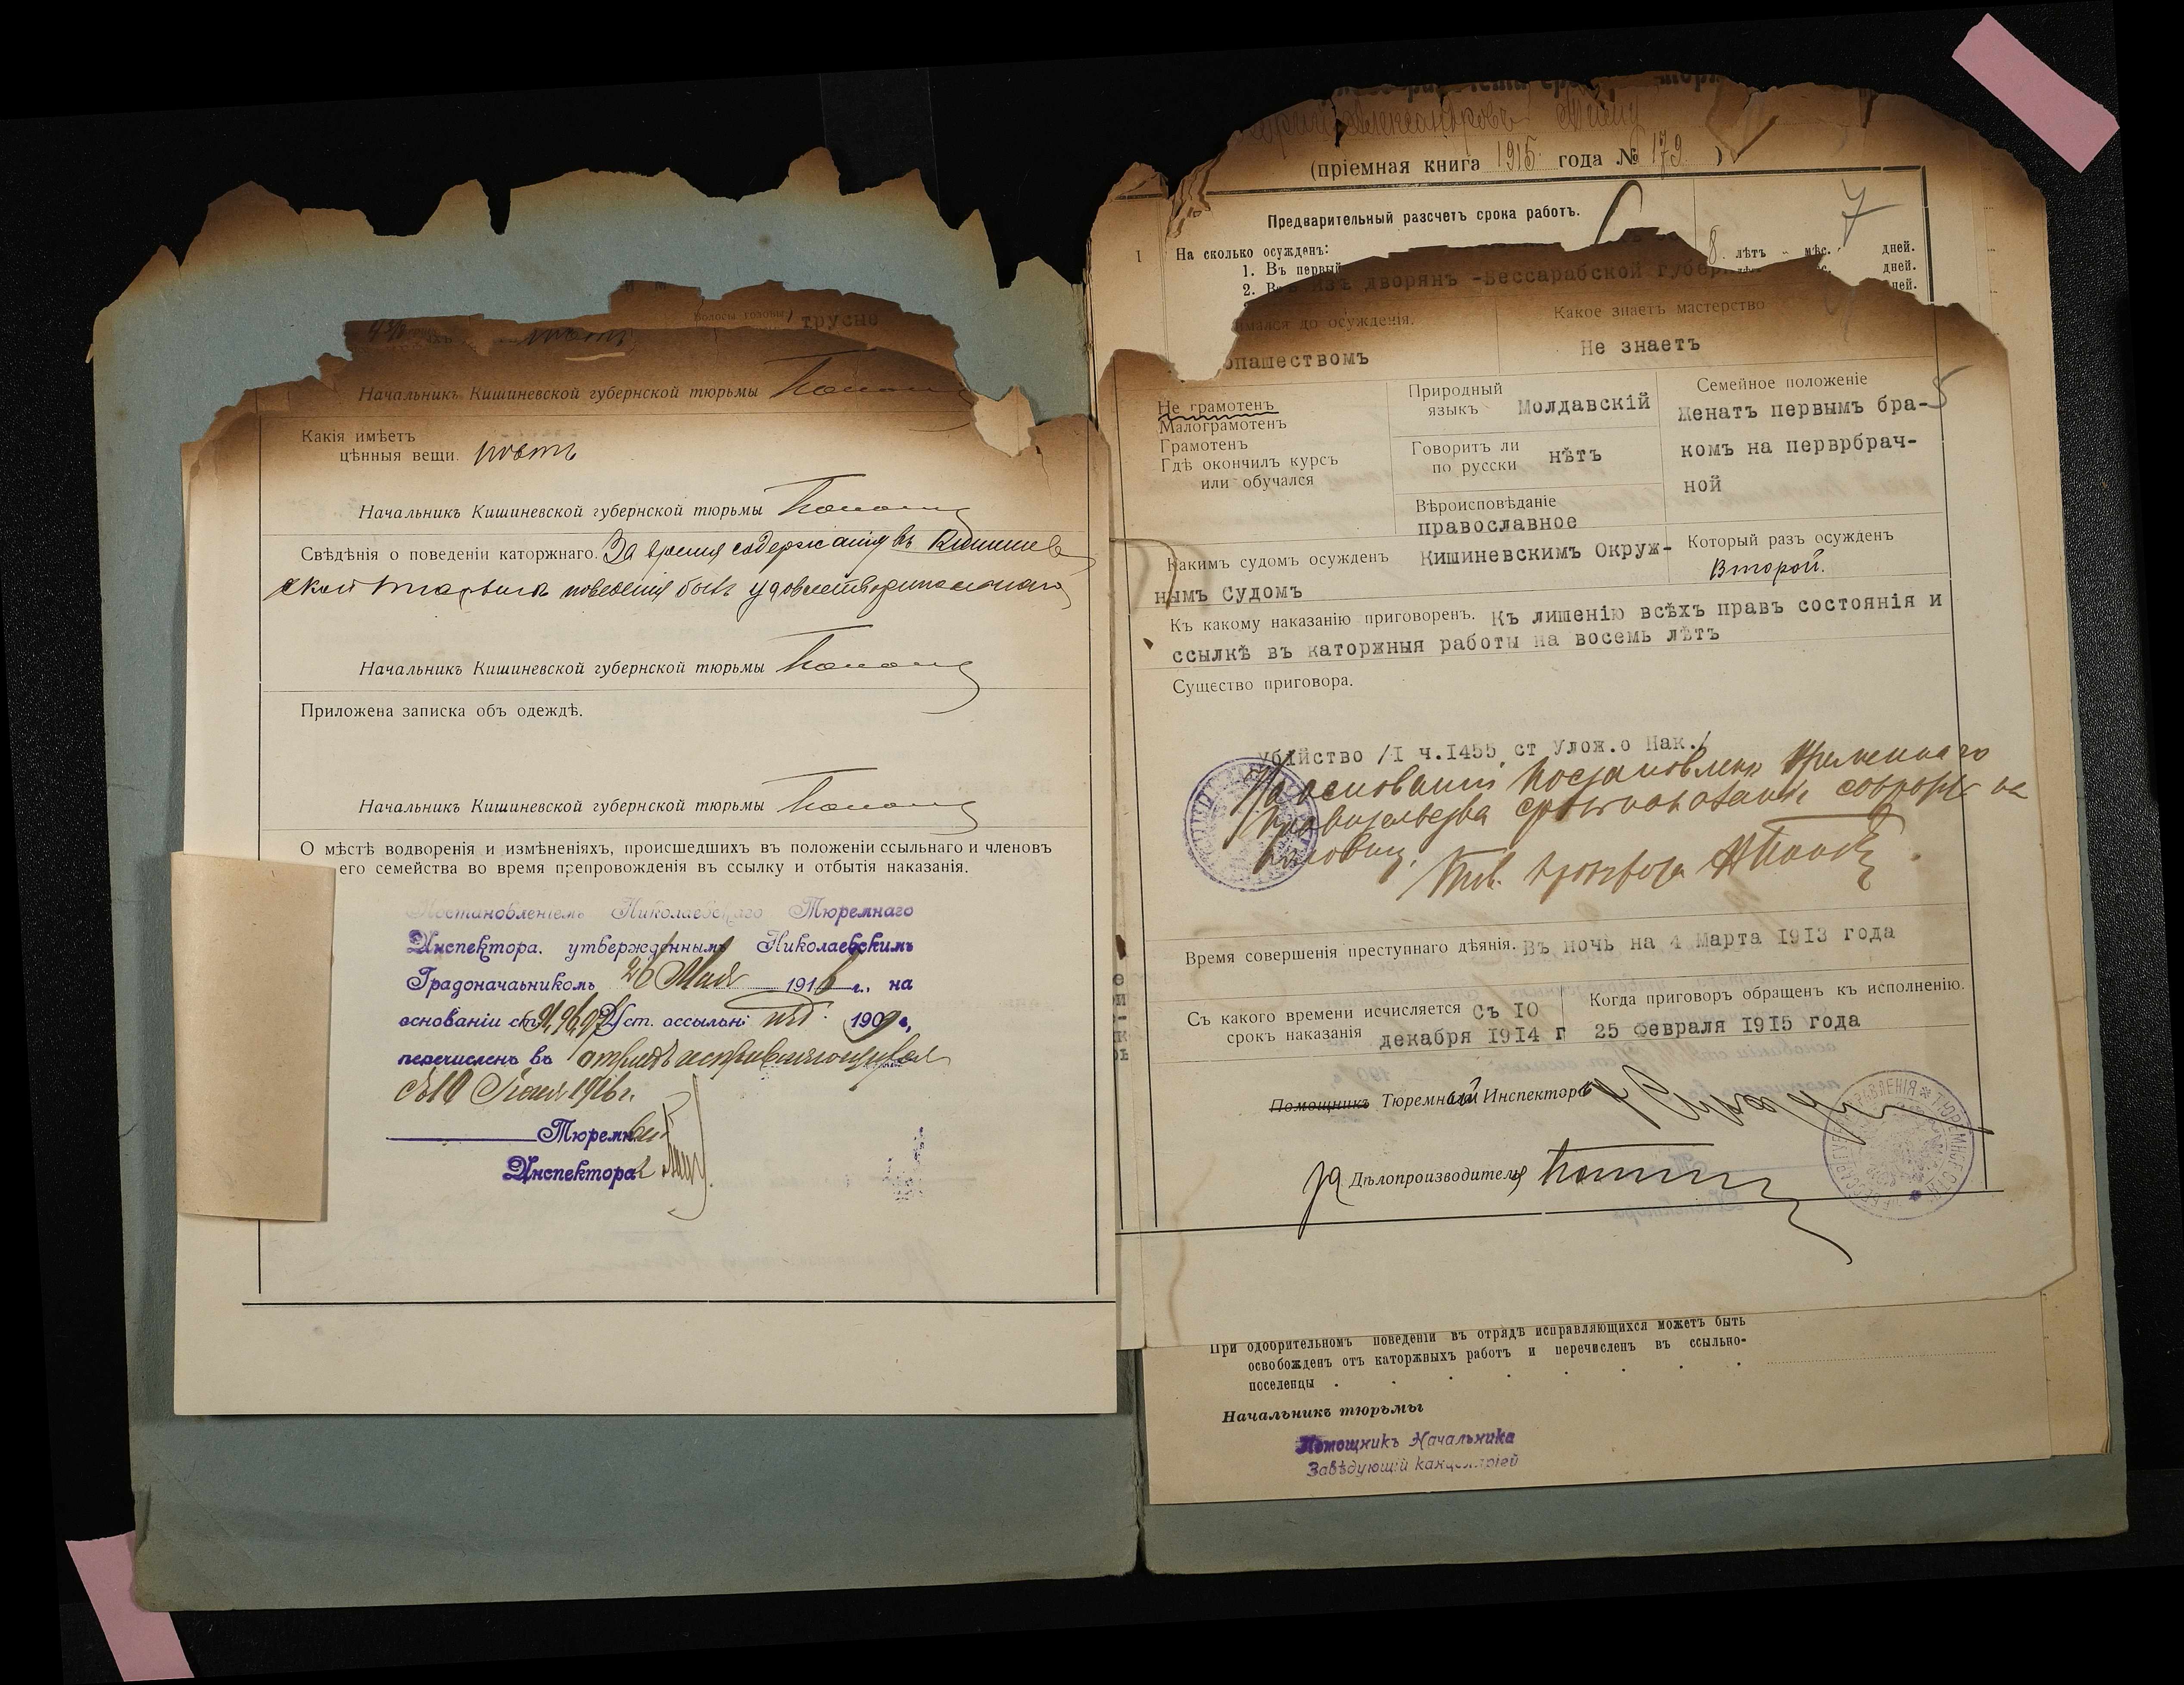 трусне
Начальникъ Кишиневской губернской тюрьмы
Какія имѣетъ
цѣнныя вещи. нѣтъ
Начальникъ Кишиневской губернской тюрьмы
Свѣдѣнія о поведеніи каторжнаго. За время содержанія въ Кишинев
ской тюрьмѣ поведенія былъ удовлетворительнаго
Начальникъ Кишиневской губернской тюрьмы
Приложена записка объ одеждѣ.
Начальникъ Кишиневской губернской тюрьмы
О мѣстѣ водворенія и измѣненіяхъ, происшедшихъ въ положеніи ссыльнаго и членовъ
его семейства во время препровожденія въ ссылку и отбытія наказанія.
Постановленіемъ Николаевскаго Тюремнаго
Инспектора, утвержденнымъ Николаевскимъ
Градоначаьникомъ 26 Мая 1916 г., на
основаніи ст. Уст. оссыльн: изд. 1909 г,
перечисленъ въ отрядъ исправляющихся
съ 10 Іюня 1916 г.
Тюремный
Инспекторъ
(пріемная книга 1915 года № 179 )
Предварительный разсчетъ срока работъ.
7
I На сколько осужденъ: 8 лѣтъ - мѣс. дней.
1. Въ первый дней.
2. дней.
изъ дворянъ -Бессарабской губерн
имался до осужденія. Какое знаетъ мастерство
опашествомъ Не знаетъ
5
Не грамотенъ
Малограмотенъ
Грамотенъ
Гдѣ окончилъ курсъ
или обучался
Природный
языкъ Молдавскій
Говоритъ ли
по русски нѣтъ
Вѣроисповѣданіе
православное
Семейное положеніе
Женатъ первымъ бра-
комъ на перврбрач-
ной
Какимъ судомъ осужденъ Кишиневскимъ Окруж-
нымъ Судомъ
Который разъ осужденъ
Второй.
Къ какому наказанію приговоренъ. Къ лишенію всѣхъ правъ состоянія и
ссылкѣ въ каторжныя работы на восемь лѣтъ
Существо приговора.
Убійство /I ч.I455 ст Улож.о Нак./
На основаніи постановленія Временнаго
Правительства срокъ наказанія сокращ на
половину.
Время совершенія преступнаго дѣянія. Въ ночь на 4 Марта I9I3 года
Съ какого времени исчисляется Съ I0
срокъ наказанія декабря I9I4 г
Когда приговоръ обращенъ къ исполненію.
25 Февраля I9I5 года
Помощникъ Тюремный Инспекторъ
За Дѣлопроизводителя
При одобрительномъ поведеніи въ отрядѣ исправляющихся можетъ быть
освобожденъ отъ каторжныхъ работъ и перечисленъ въ ссыльно-
поселенцы
Начальникъ тюрьмы
Помощникъ Начальника
Завѣдующій канцеляріей